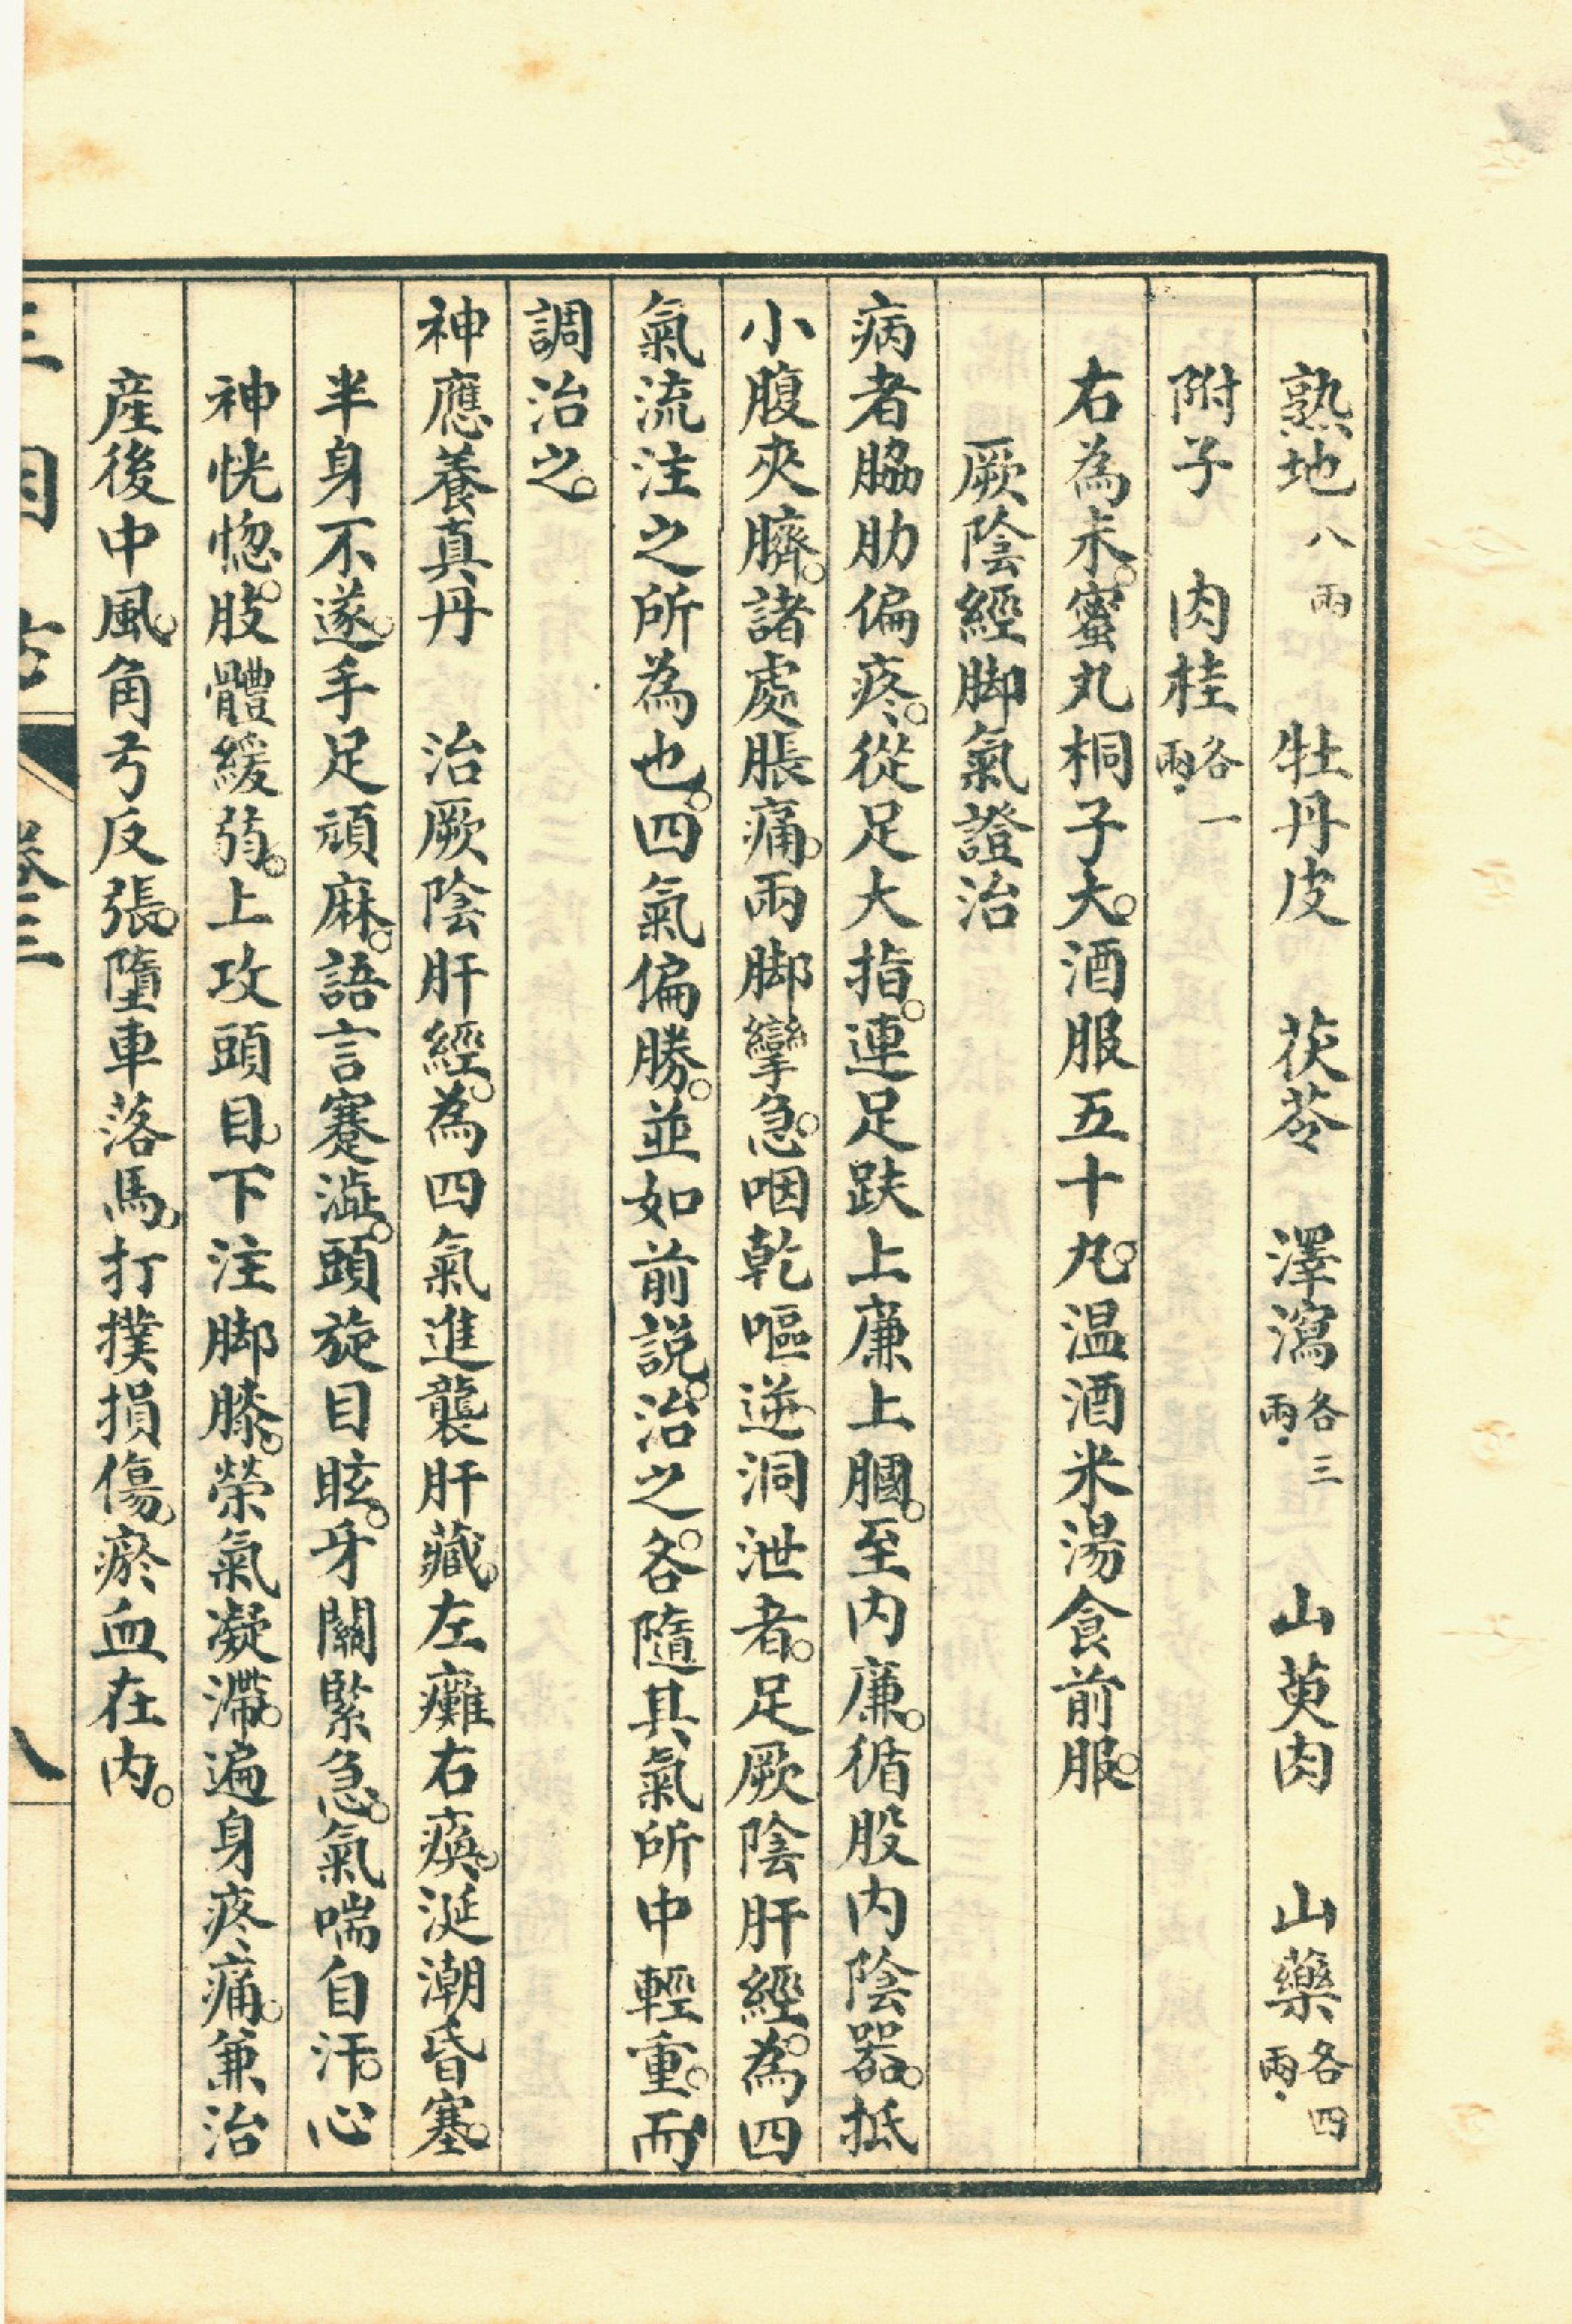 熟地八兩 牡丹皮 茯苓 澤瀉各三兩 山萸肉 山藥各四兩
附子 肉桂各一兩
右為末。蜜丸桐子大。酒服五十丸。温酒米湯食前服。
厥陰經脚氣證治
病者脇肋偏疼。從足大指。連足趺上廉上膕。至内廉。循股内陰器。抵
小腹夾臍。諸處脹痛。兩脚攣急。咽乾嘔逆洞泄者。足厥陰肝經。為四
氣流注之所為也。四氣偏勝。並如前説。治之。各隨其氣所中輕重。而
調治之。
神應養真丹 治厥陰肝經。為四氣進襲肝藏。左癱右瘓。涎潮昏塞。
半身不遂。手足頑麻。語言蹇澁。頭旋目眩。牙關緊急。氣喘自汗。心
神恍惚。肢體緩弱。上攻頭目。下注脚膝。榮氣凝滯。遍身疼痛。兼治
産後中風。角弓反張。墮車落馬。打撲損傷。瘀血在内。
三因方 卷三 八